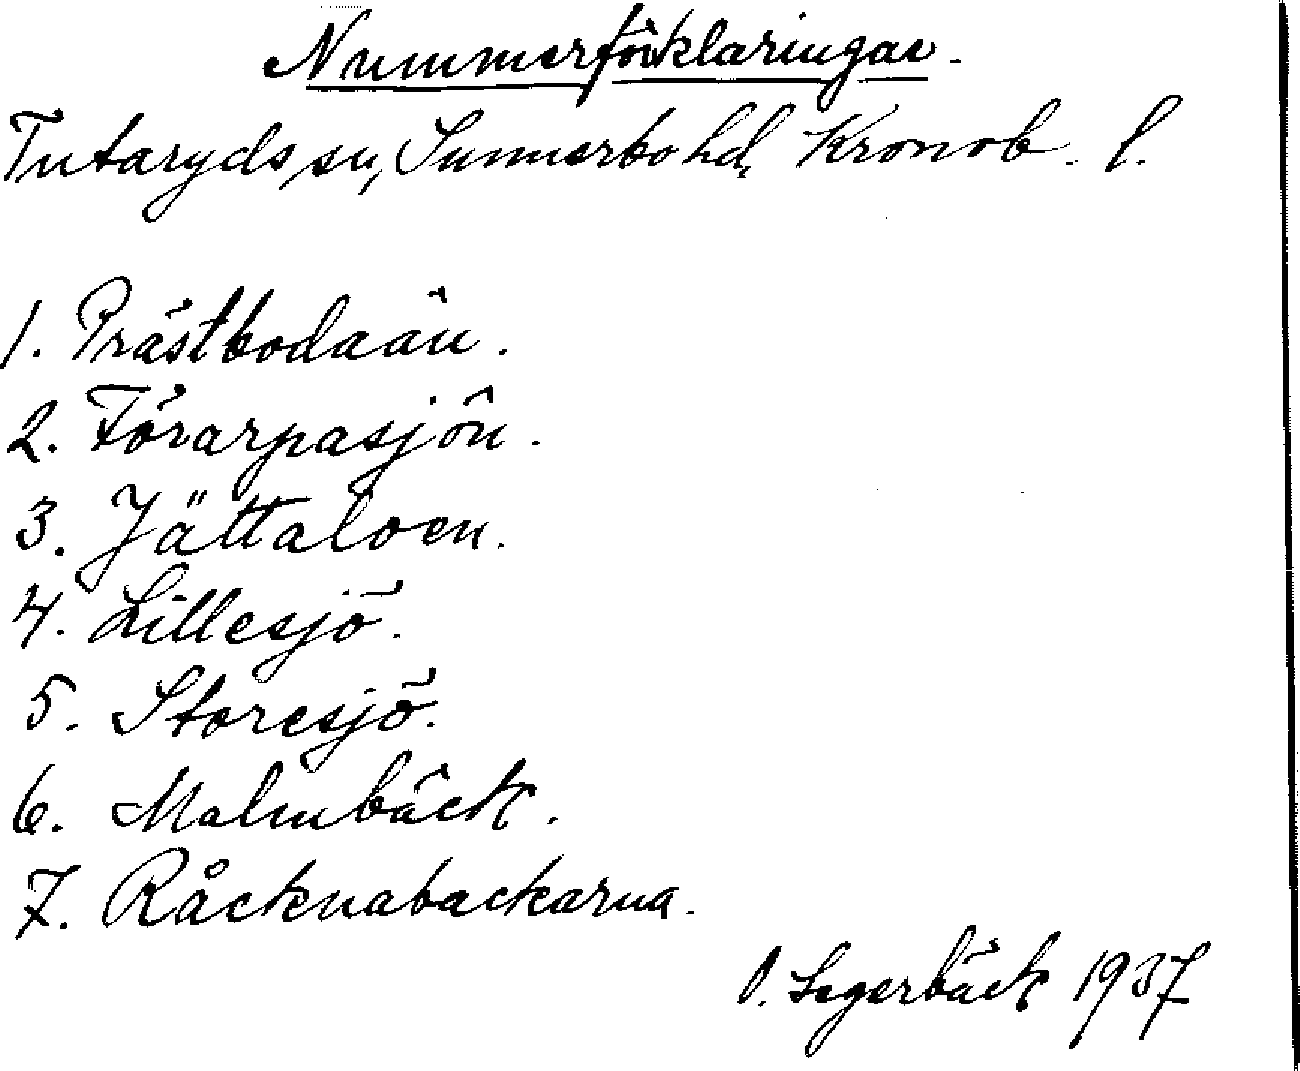 Nummerförklaringar.
Tutaryds sn, Sunnerbo hd, Kronob. l.
1. Prästbodaån.
2. Förarpasjön.
3. Jättaloen.
4. Lillesjö.
5. Storesjö.
6. Malmbäck.
7. Råcknabackarna.
O. Segerbäck 1937